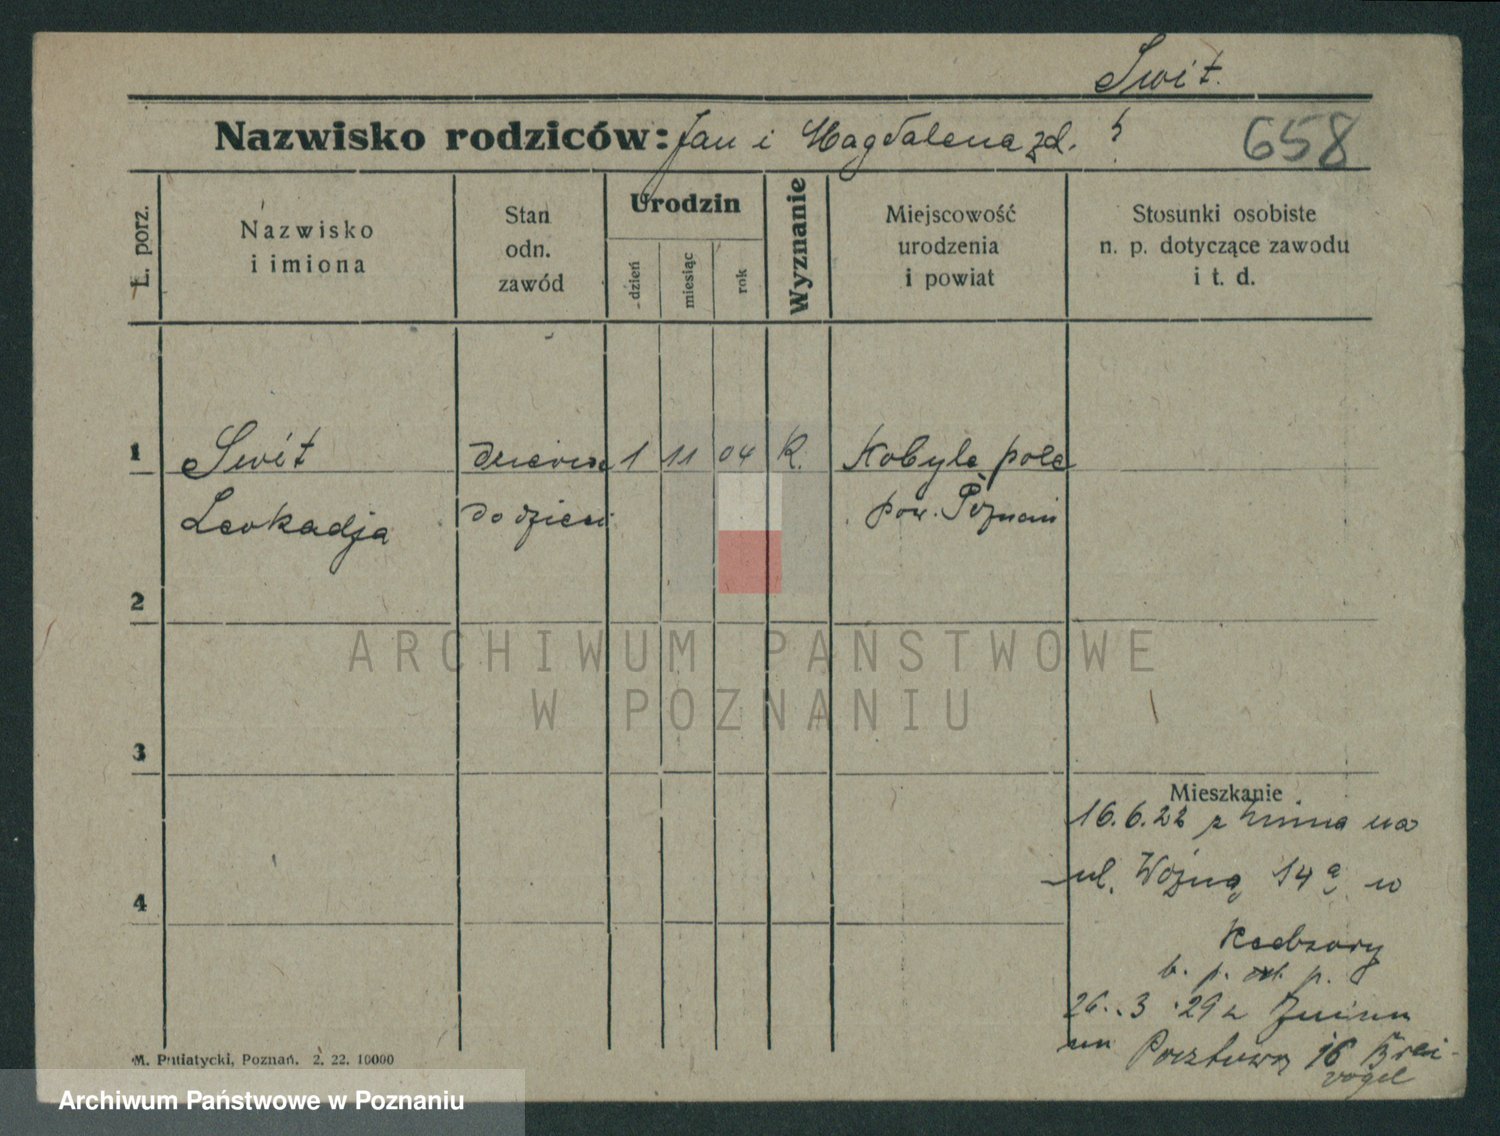 Swit.
Nazwisko rodziców: Jan i Magdalena zd. ?
658
L. porz.
Nazwisko
i imiona
Stan
odn.
zawód
Urodzin
dzień
miesiąc
rok
Wyznanie
Miejscowość
urodzenia
i powiat
Stosunki osobiste
n. p. dotyczące zawodu
i t. d.
1
Swit
1 11 04 K.
Kobyle pole
Leokadja
do dzieci
pow. Poznań
2
ARCHIWUM PAŃSTWOWE
W POZNANIU
3
Mieszkanie
16.6.22 z na
ul. Wožną 14a w
4
b. p. p.
26. 3. 29 z
na Pocztową 16 Brei-
vogel
M. Putiatycki, Poznań. 2. 22. 10000
Archiwum Państwowe w Poznaniu